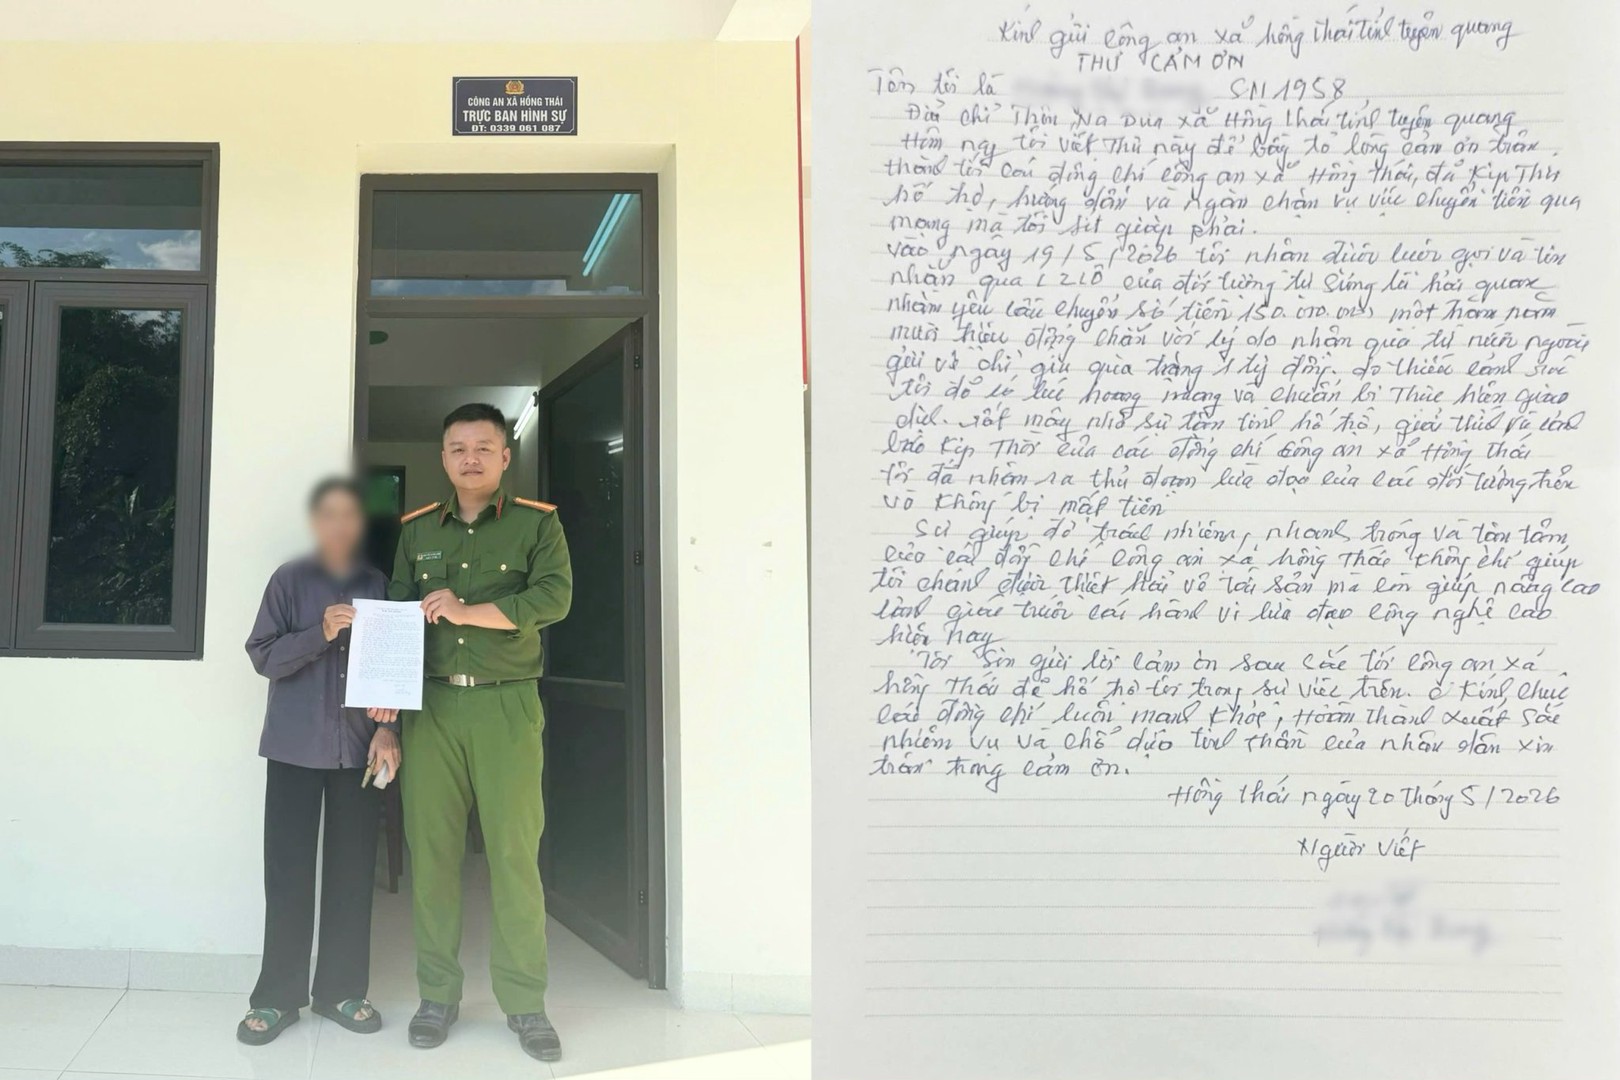 CÔNG AN XÃ HỒNG THÁI
TRỰC BAN HÌNH SỰ
ĐT: 0339 061 087
Kính gửi công an xã hồng thái tỉnh tuyên quang
THƯ CẢM ƠN
Tên tôi là SN 1958
Địa chỉ Thôn Na Dua xã Hồng thái tỉnh tuyên quang
Hôm nay tôi viết Thư này để bày tỏ lòng cảm ơn trân
thành tới các đồng chí công an xã Hồng thái, đã Kịp Thời
hỗ trợ, hướng dẫn và ngăn chặn vụ việc chuyển tiền qua
mạng mà tôi sít gặp phải.
vào ngày 19/5/2026 tôi nhận được cuộc gọi và tin
nhắn qua của đối tượng tự sưng là hải quan
nhằm yêu cầu chuyển số tiền 150.000.000 một trăm năm
mươi triệu đồng chẵn với lý do nhận quà từ nước ngoài
gửi về chị giá quà bằng 1 tỷ đồng. do thiếu cảnh giác
tôi đã có lúc hoang mang và chuẩn bị Thực hiện giao
dịch. rất may nhờ sự tận tình hỗ trợ, giải thích và cảnh
báo Kịp Thời của các đồng chí công an xã Hồng thái
tôi đã nhận ra thủ đoạn lừa đạo của các đối tượng trên
và không bị mất tiền
Sự giúp đỡ trách nhiệm, nhanh tróng và tận tâm
của các đồng chí công an xã hồng thái không chỉ giúp
tôi chánh được thiệt hại về tài sản mà còn giúp nâng cao
cảnh giác trước các hành vi lừa đạo công nghệ cao
hiện nay
Tôi sin gửi lời cảm ơn sâu sắc tới công an xã
hồng Thái đã hỗ trợ tôi trong sự việc trên. Kính chúc
các đồng chí luôn mạnh khỏe, Hoàn thành xuất sắc
nhiệm vụ và chỗ dựa tinh thần của nhân dân xin
trân trọng cảm ơn.
Hồng thái ngày 20 tháng 5/2026
Người viết